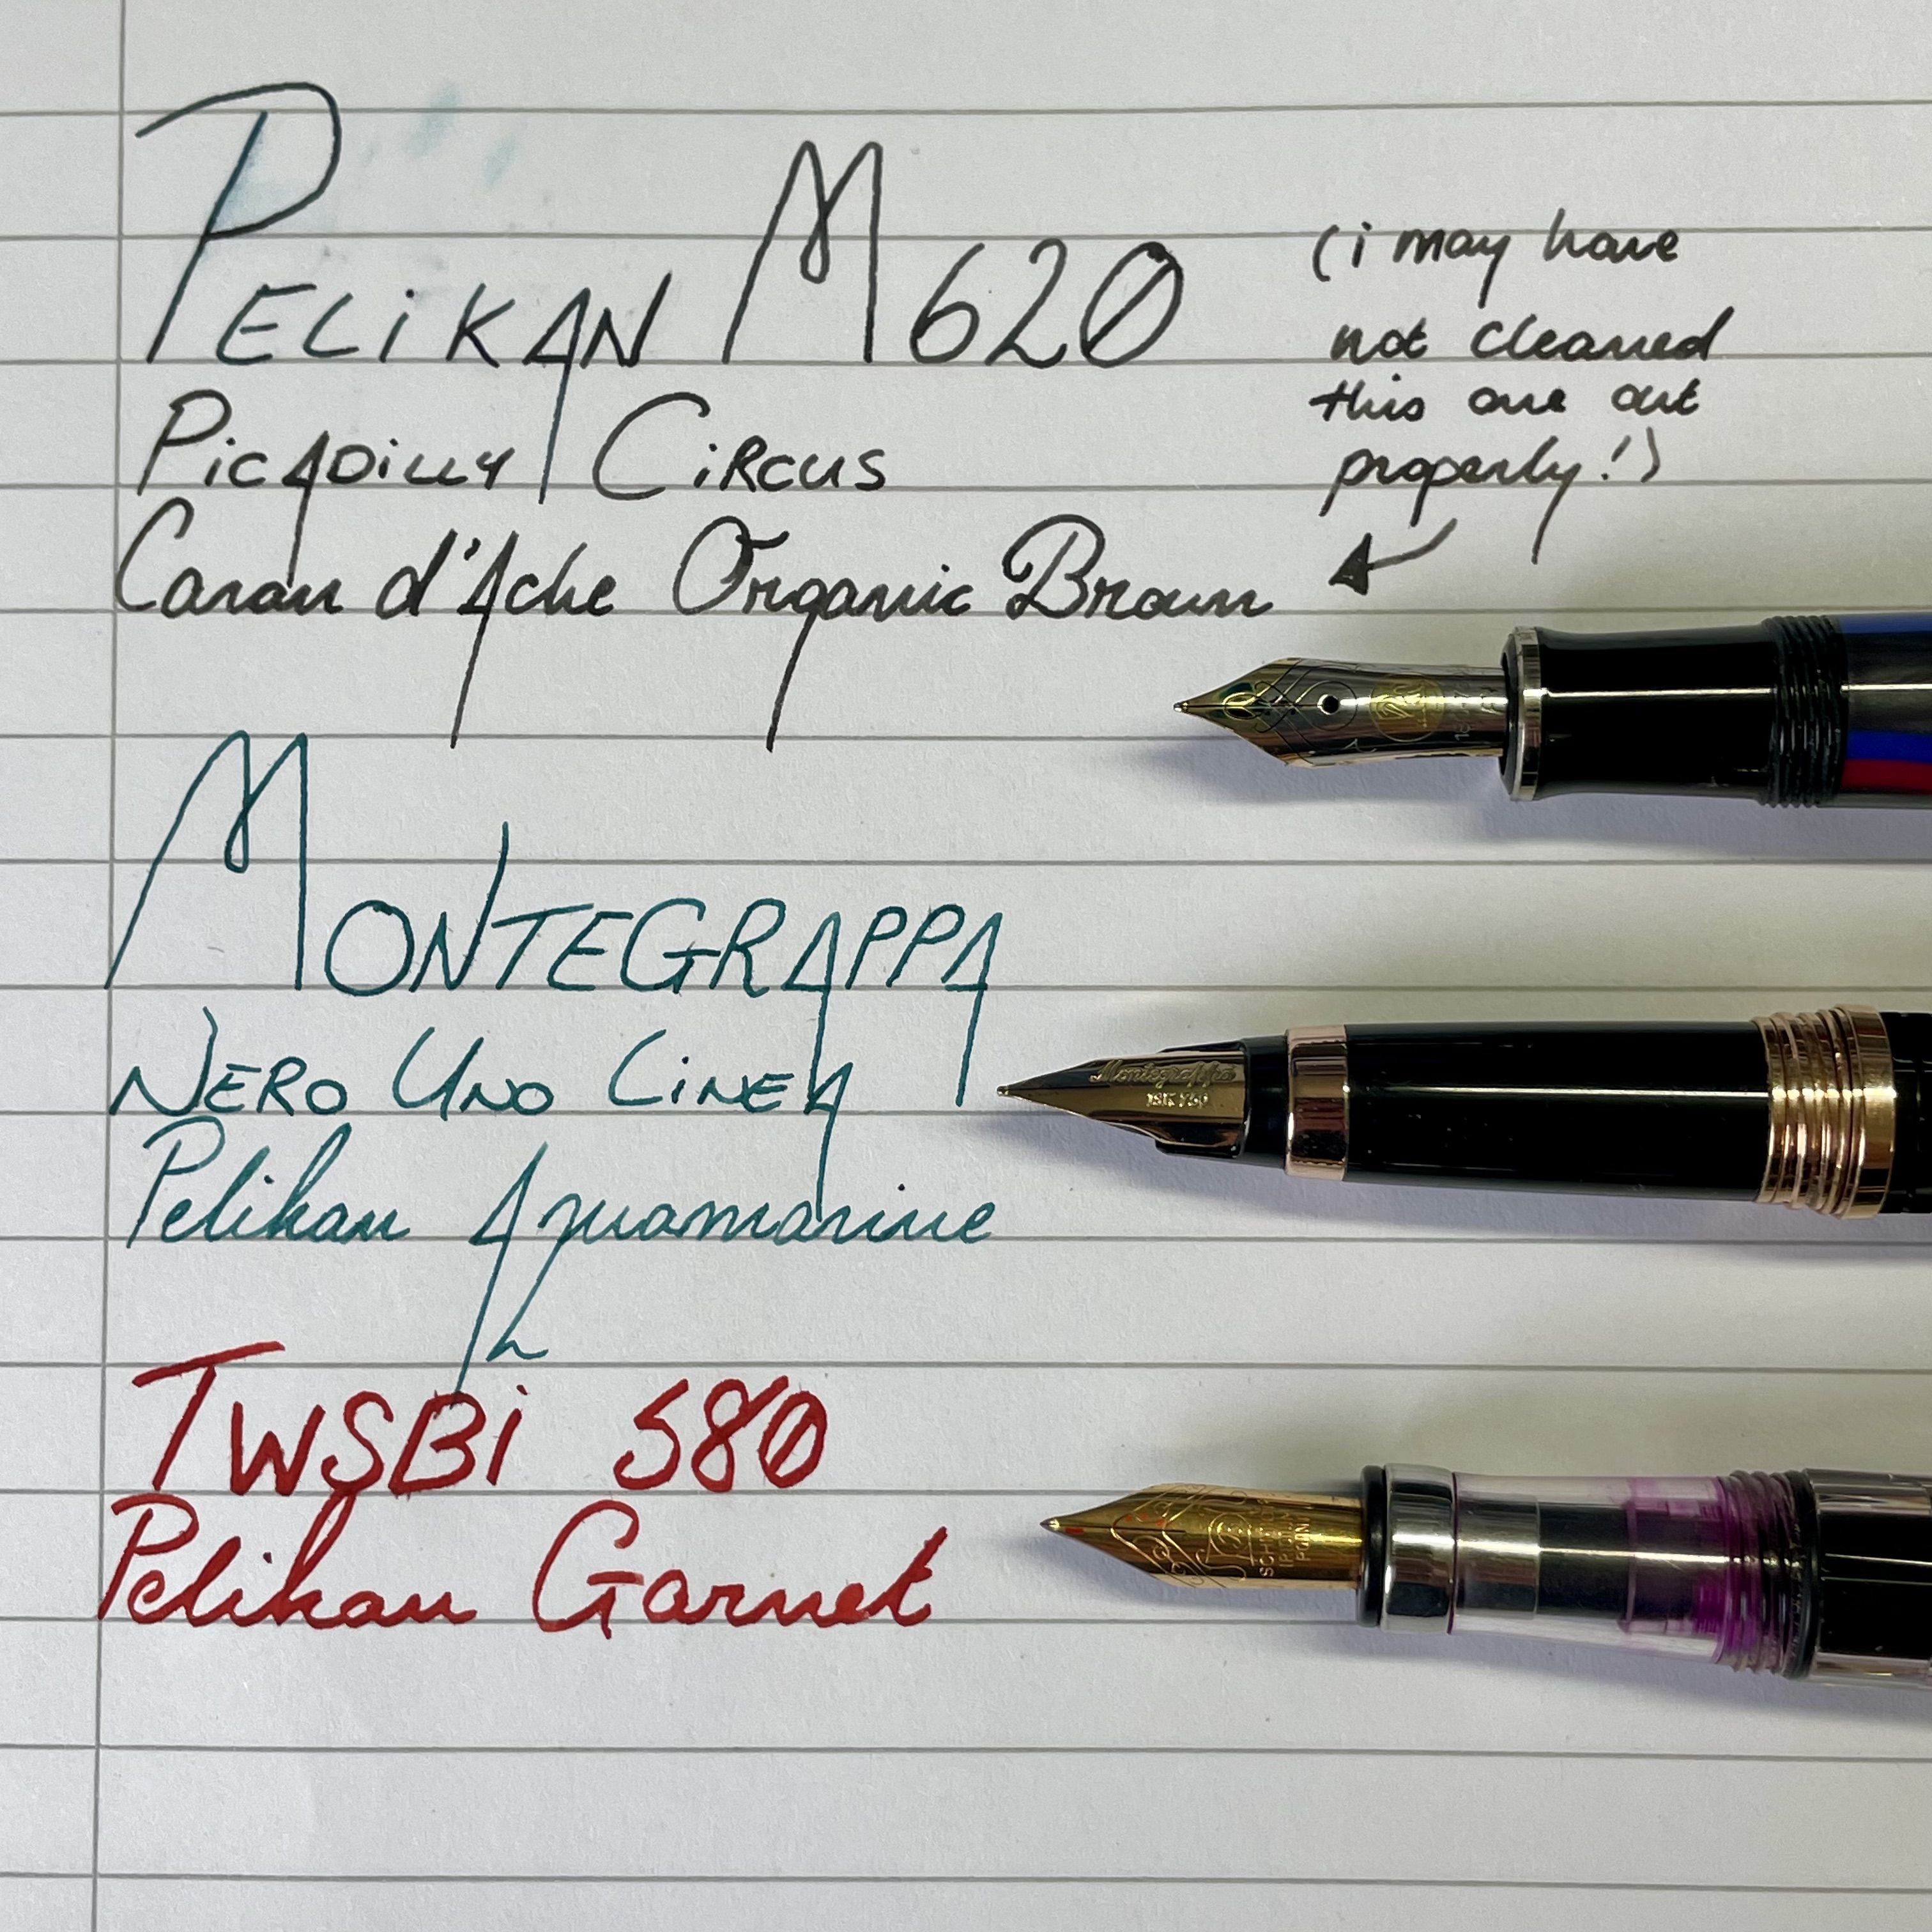 PELiKAN M620
PiCADiLLY CiRCUS
Caran d'Ache Organic Brown
(i may have
not cleaned
this one out
properly!)
MONTEGRAPPA
NERO UNO LiNEA
Pelikan Aquamarine
TWSBi 580
Pelikan Garnet
Montegrappa